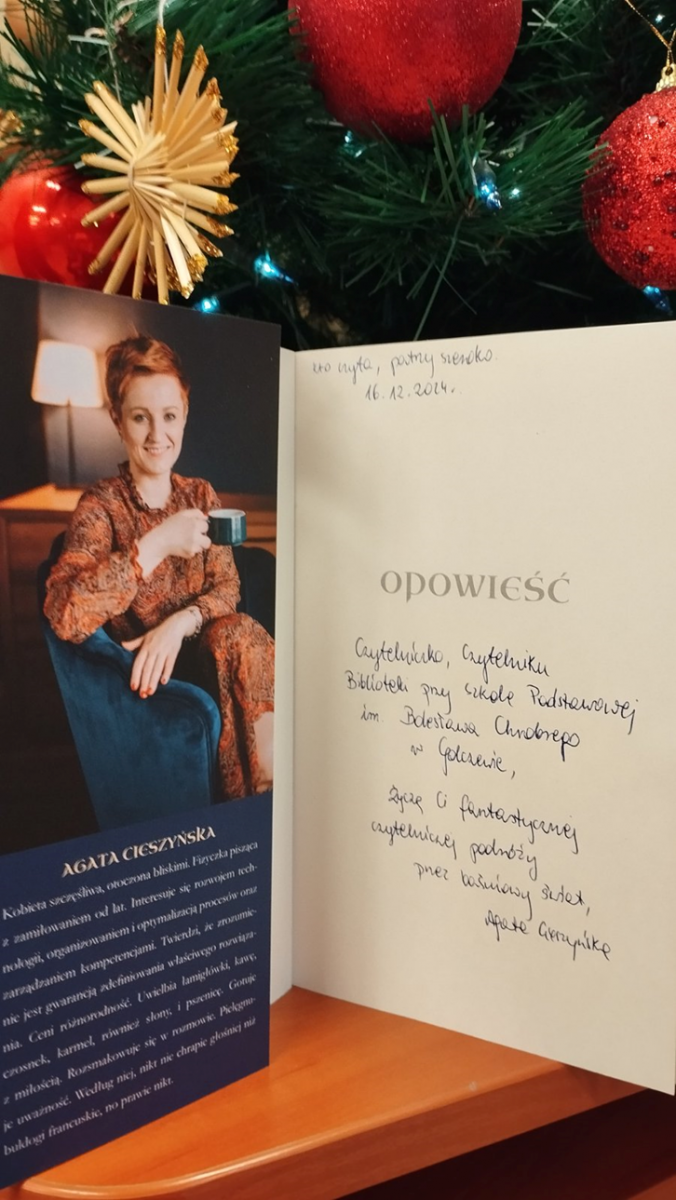 AGATA CIESZYŃSKA
Kobieta szczęśliwa, otoczona bliskimi. Fizyczka pisząca
z zamiłowaniem od lat. Interesuje się rozwojem tech-
nologii, organizowaniem i optymalizacją procesów oraz
zarządzaniem kompetencjami. Twierdzi, że zrozumie-
nie jest gwarancją zdefiniowania właściwego rozwiąza-
nia. Ceni różnorodność. Uwielbia łamigłówki, kawę,
czosnek, karmel, również słony, i pszenicę. Gotuje
z miłością. Rozsmakowuje się w rozmowie. Pielęgnu-
je uważność. Według niej, nikt nie chrapie głośniej niż
buldogi francuskie, no prawie nikt.
Kto czyta, patrzy szeroko.
16.12.2024r.
OPOWIEŚĆ
Czytelniczko, Czytelniku
Biblioteki przy Szkole Podstawowej
im. Bolesława Chrobrego
w Golczewie,
Życzę Ci fantastycznej
czytelniczej podróży
przez baśniowy świat,
Agata Cieszyńska